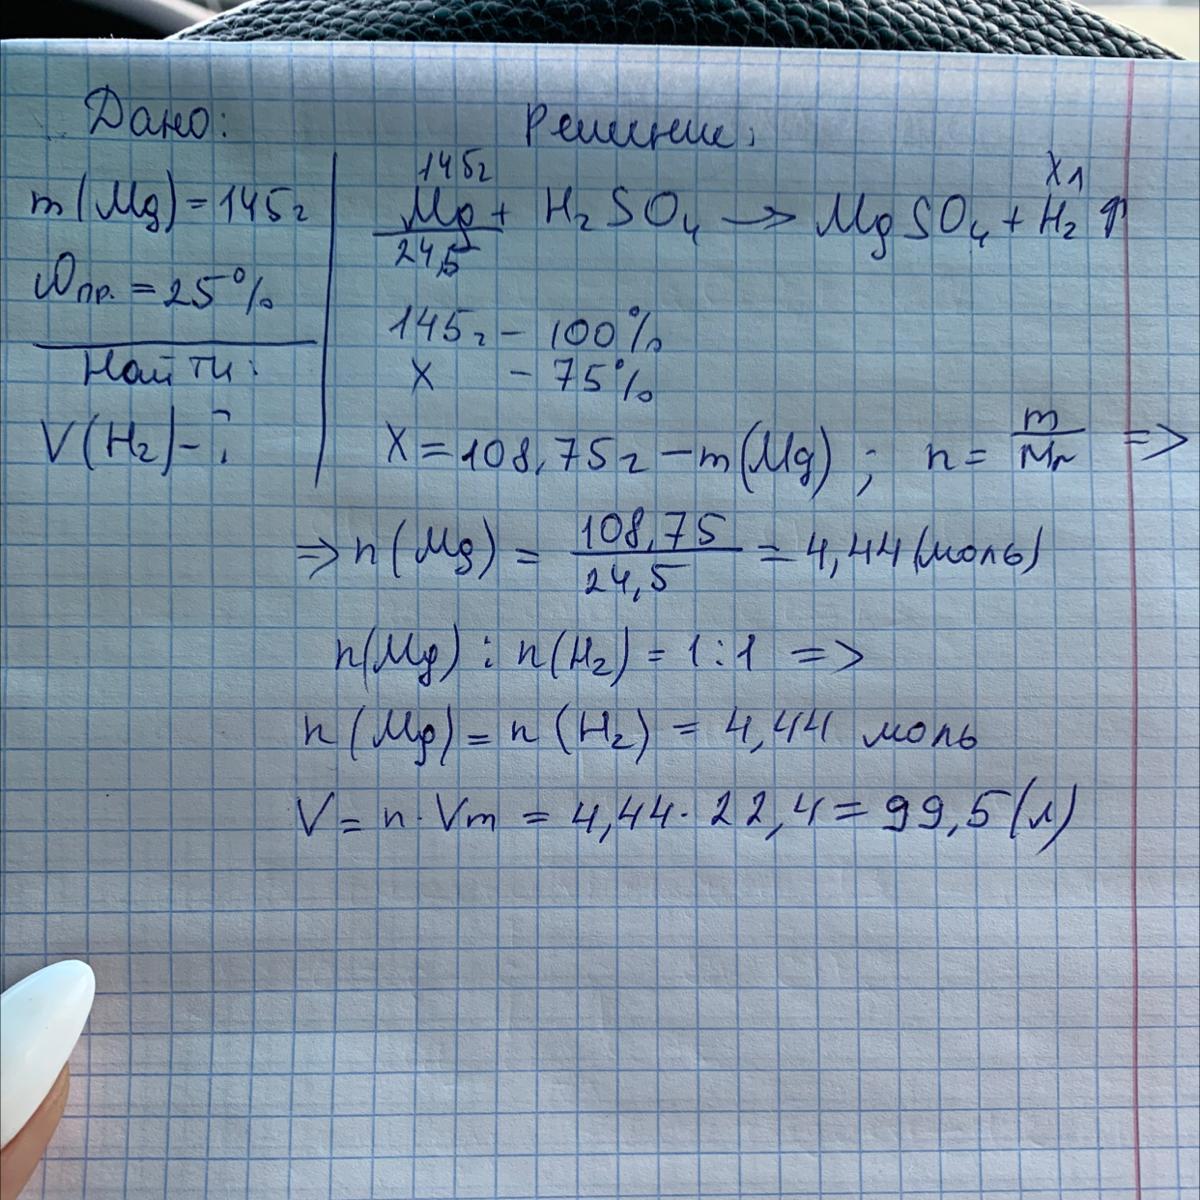 Дано:
Решение:
m(Mg) = 145г
ωпр. = 25%
Найти:
V(H₂) - ?
145г X₁
Mg + H₂SO₄ → MgSO₄ + H₂↑
24,5
145г - 100%
X - 75%
X = 108,75г - m(Mg) ; n = m/Mr =>
=> n(Mg) = 108,75/24,5 = 4,44 (моль)
n(Mg) : n(H₂) = 1:1 =>
n(Mg) = n(H₂) = 4,44 моль
V = n · Vm = 4,44 · 22,4 = 99,5 (л)